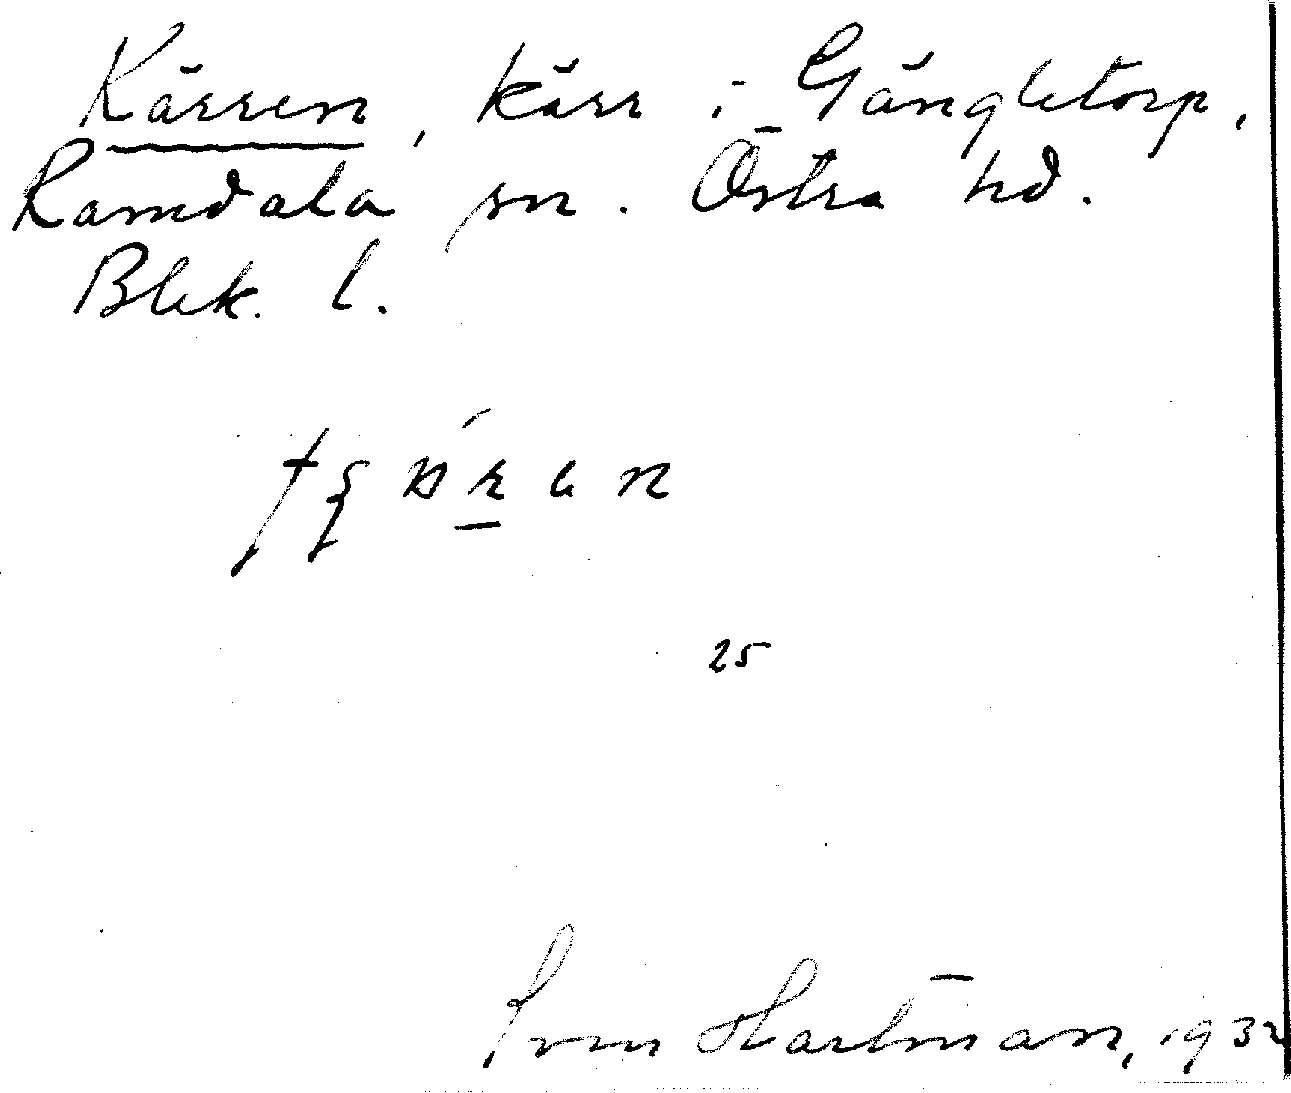 Kärren, kärr i Gängletorp,
Ramdala sn. Östra hd.
Blek. l.
25
Sven Hartman, 1932